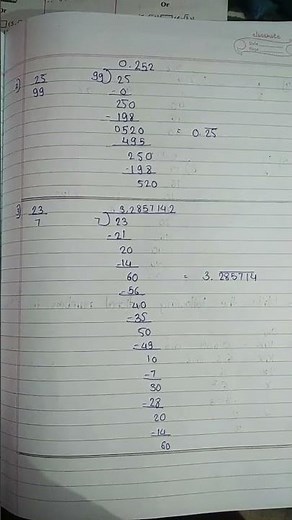 Or
classmate
Date
Page
0.252
25
99
99) 25
-0
250
- 198
0520 = 0.25
495
250
- 198
520
23
7
3.2857142
7) 23
-21
20
-14
60 = 3.285714
-56
40
-35
50
-49
10
-7
30
-28
20
-14
60